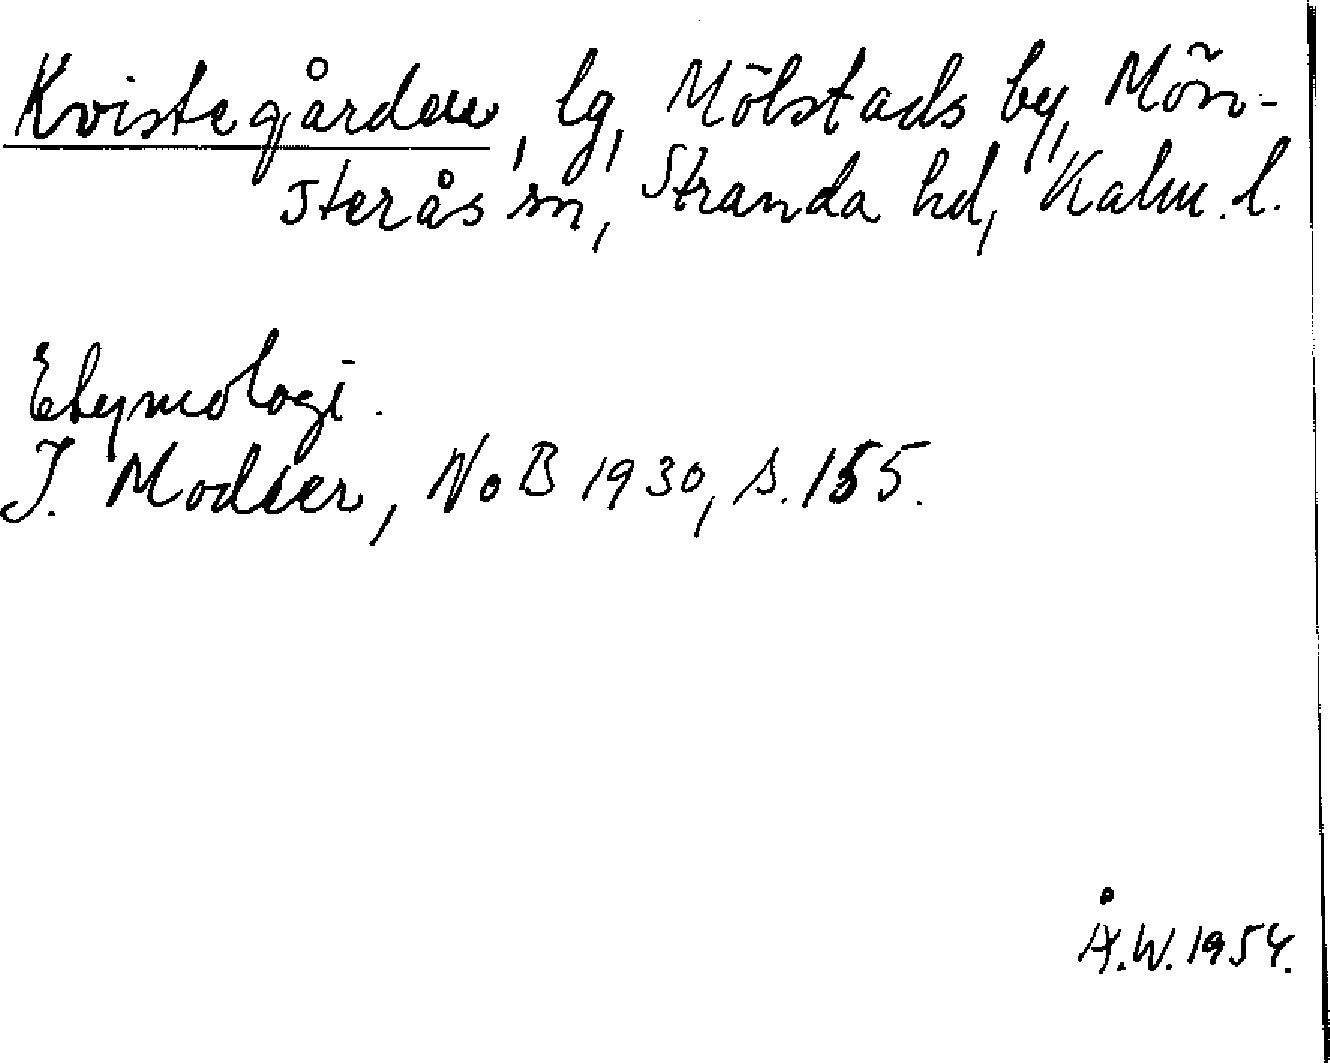 Kvistegården, lg, Mölstads by, Mön-
sterås sn, Stranda hd, Kalm. l.
Etymologi.
I. Modéer, NoB 1930, s. 155.
Å.W. 1954.